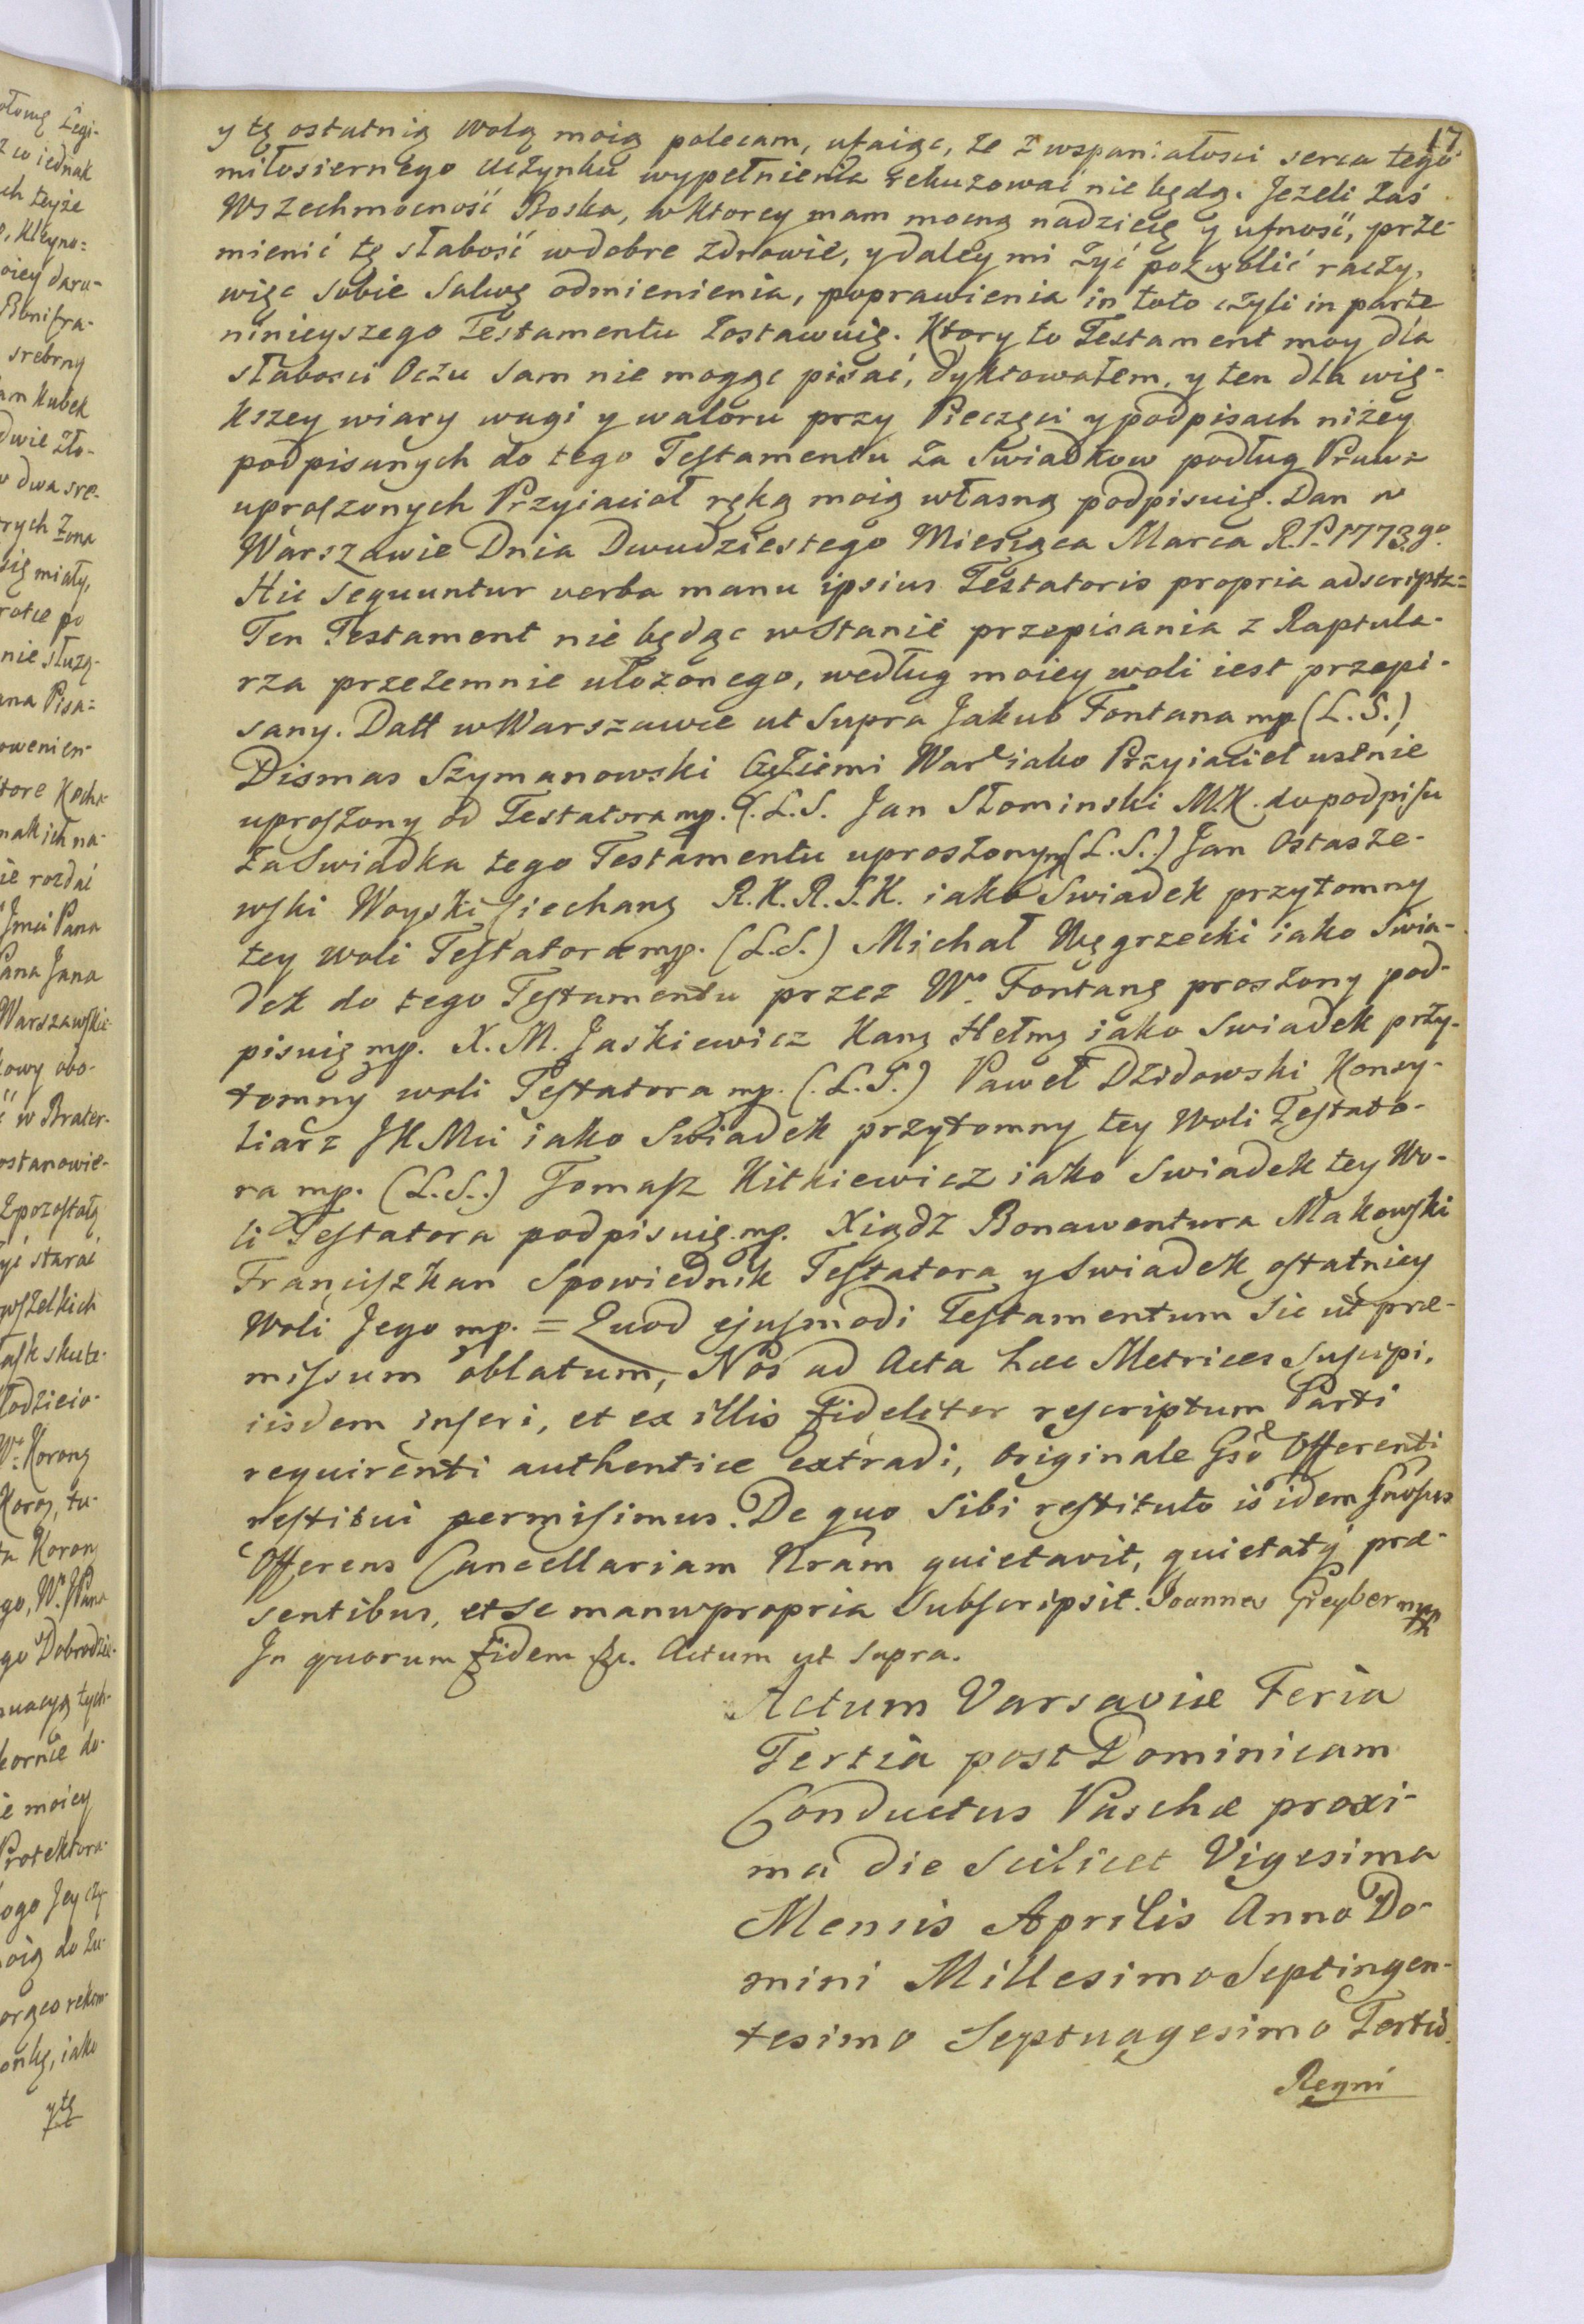 17
y tę ostatnią wolą moią polecam, ufaiąc, że z wspaniałosci serca tego
miłosiernego uczynku wypełnienia rekuzować nie będą. Jeżeli zaś
Wszechmocność Boska, w ktorey mam mocną nadzieię y ufność, prze-
mienić tę słabość w dobre zdrowie, y daley mi żyć pozwolić raczy,
więc sobie salwę odmienienia, poprawienia in toto czyli in parte
ninieyszego Testamentu zostawuię. Ktory to Testament moy dla
słabosci Oczu sam nie mogąc pisać, dyktowałem, y ten dla wię-
kszey wiary wagi y waloru przy Pieczęci y podpisach niżey
podpisanych do tego Testamentu za Swiadkow podług Prawa
uproszonych Przyiacioł ręką moią własną podpisuię. Dan w
Warszawie Dnia Dwudziestego Miesiąca Marca R.P. 1773go.
Hic sequuntur verba manu ipsius Testatoris propria adscripta=
Ten Testament nie będąc w Stanie przepisania z Raptula-
rza przezemnie ułożonego, według moiey woli iest przepi-
sany. Datt w Warszawie ut supra Jakub Fontana mp (L.S.)
Dismas Szymanowski Ziemi War iako Przyiaciel ustnie
uproszony od Testatora mp. (L.S. Jan Słominski MK. do podpisu
za Swiadka tego Testamentu uproszony mp (L.S.) Jan Ostasze-
wski Woyski Ciechang R.K.R.S.K. iako Swiadek przytomny
tey woli Testatora mp. (L.S.) Michał Węgrzecki iako Swia-
dek do tego Testamentu przez W. Fontanę proszony pod-
pisuię mp. X. M. Jaskiewicz Kang Hełmg iako Swiadek przy-
tomny woli Testatora mp. (.L.S.) Paweł Dzidowski Konsy-
liarz JKMci iako Swiadek przytomny tey Woli Testato-
ra mp. (L.S.) Tomasz Kitkiewicz iako Swiadek tey Wo-
li Testatora podpisuię mp. Xiądz Bonawentura Makowski
Franciszkan Spowiednik Testatora y Swiadek ostatniey
Woli Jego mp. = Quod ejusmodi Testamentum sic ut præ-
missum oblatum, Nos ad Acta hæc Metrices Suscipi,
iisdem inseri, et ex illis fideliter rescriptum Parti
requirenti authentice extradi, originale Offerenti
restitui permisimus. De quo sibi restituto is idem Gnosus
Offerens Cancellariam Nram quietavit, quietatq præ-
sentibus, et se manu propria Subscripsit. Joannes Greyber mp
In quorum fidem &c. Actum ut supra.
Actum Varsaviæ Feria
Tertia post Dominicam
Conductus Paschæ proxi-
ma die scilicet Vigesima
Mensis Aprilis Anno Do-
mini Millesimo Septingen-
tesimo Septuagesimo Tertio.
Regni